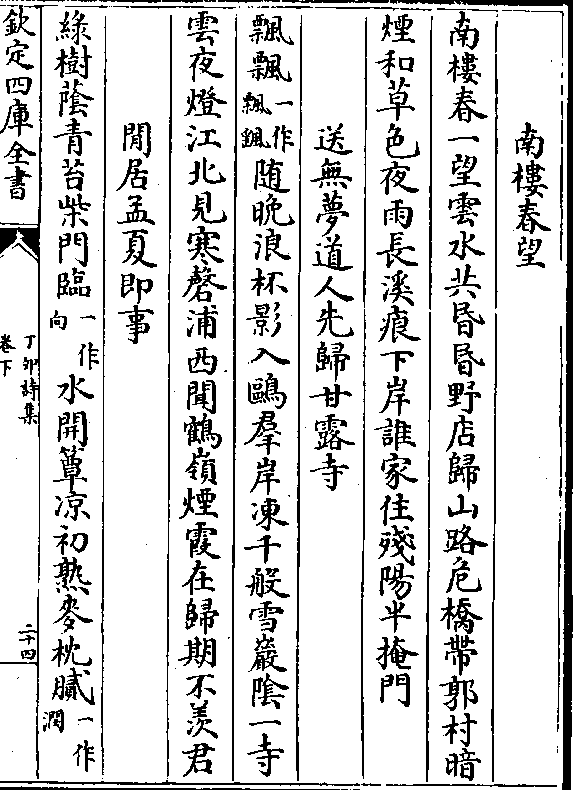 南樓春望
南樓春一望雲水共昏昏野店歸山路危橋帶郭村暗
煙和草色夜雨長溪痕下岸誰家住殘陽半掩門
送無夢道人先歸甘露寺
飄飄一作飄颻随晚浪杯影入鷗羣岸凍千般雪巖陰一寺
雲夜燈江北見寒磬浦西聞鶴嶺煙霞在歸期不羨君
閒居孟夏即事
綠樹蔭青苔柴門臨一作向水開簟凉初熟麥枕膩一作潤
欽定四庫全書
丁卯詩集
卷下
二十四